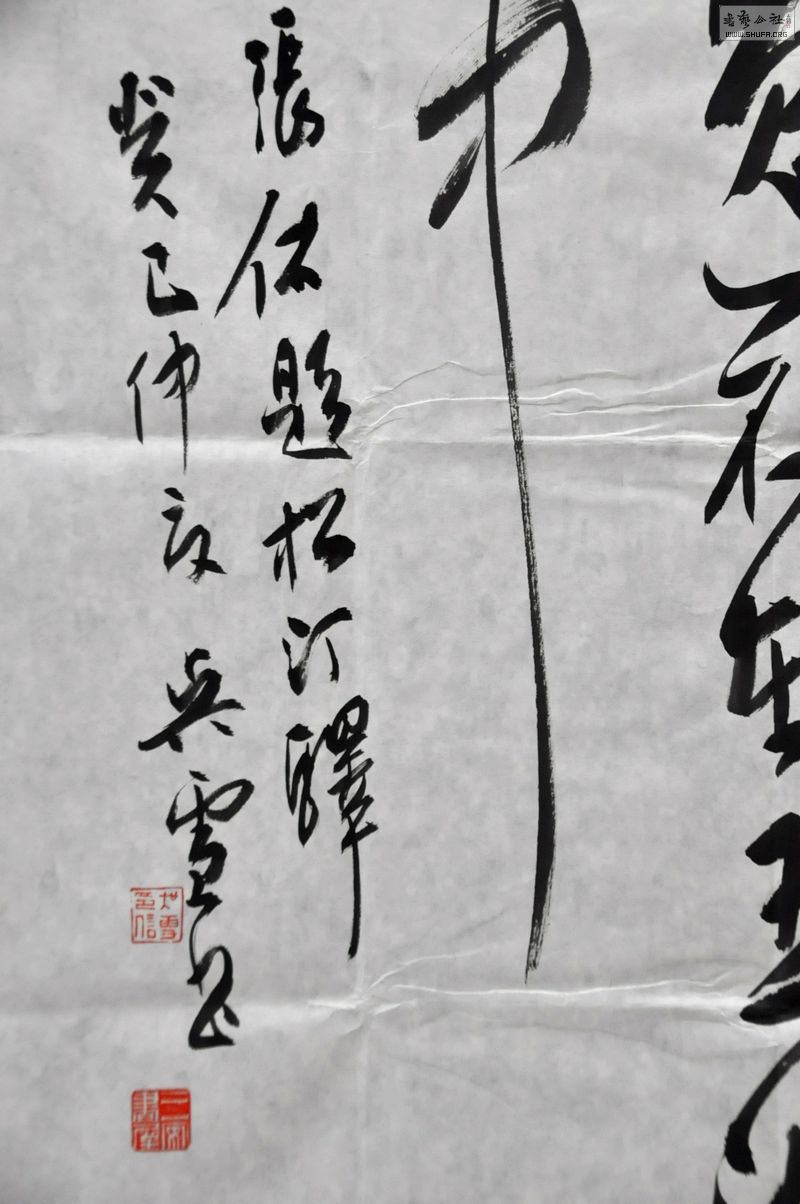 不在五湖
中
張祜題松汀驛
癸巳仲夏 吳雪書
書藝公社
WWW.SHUFA.ORG